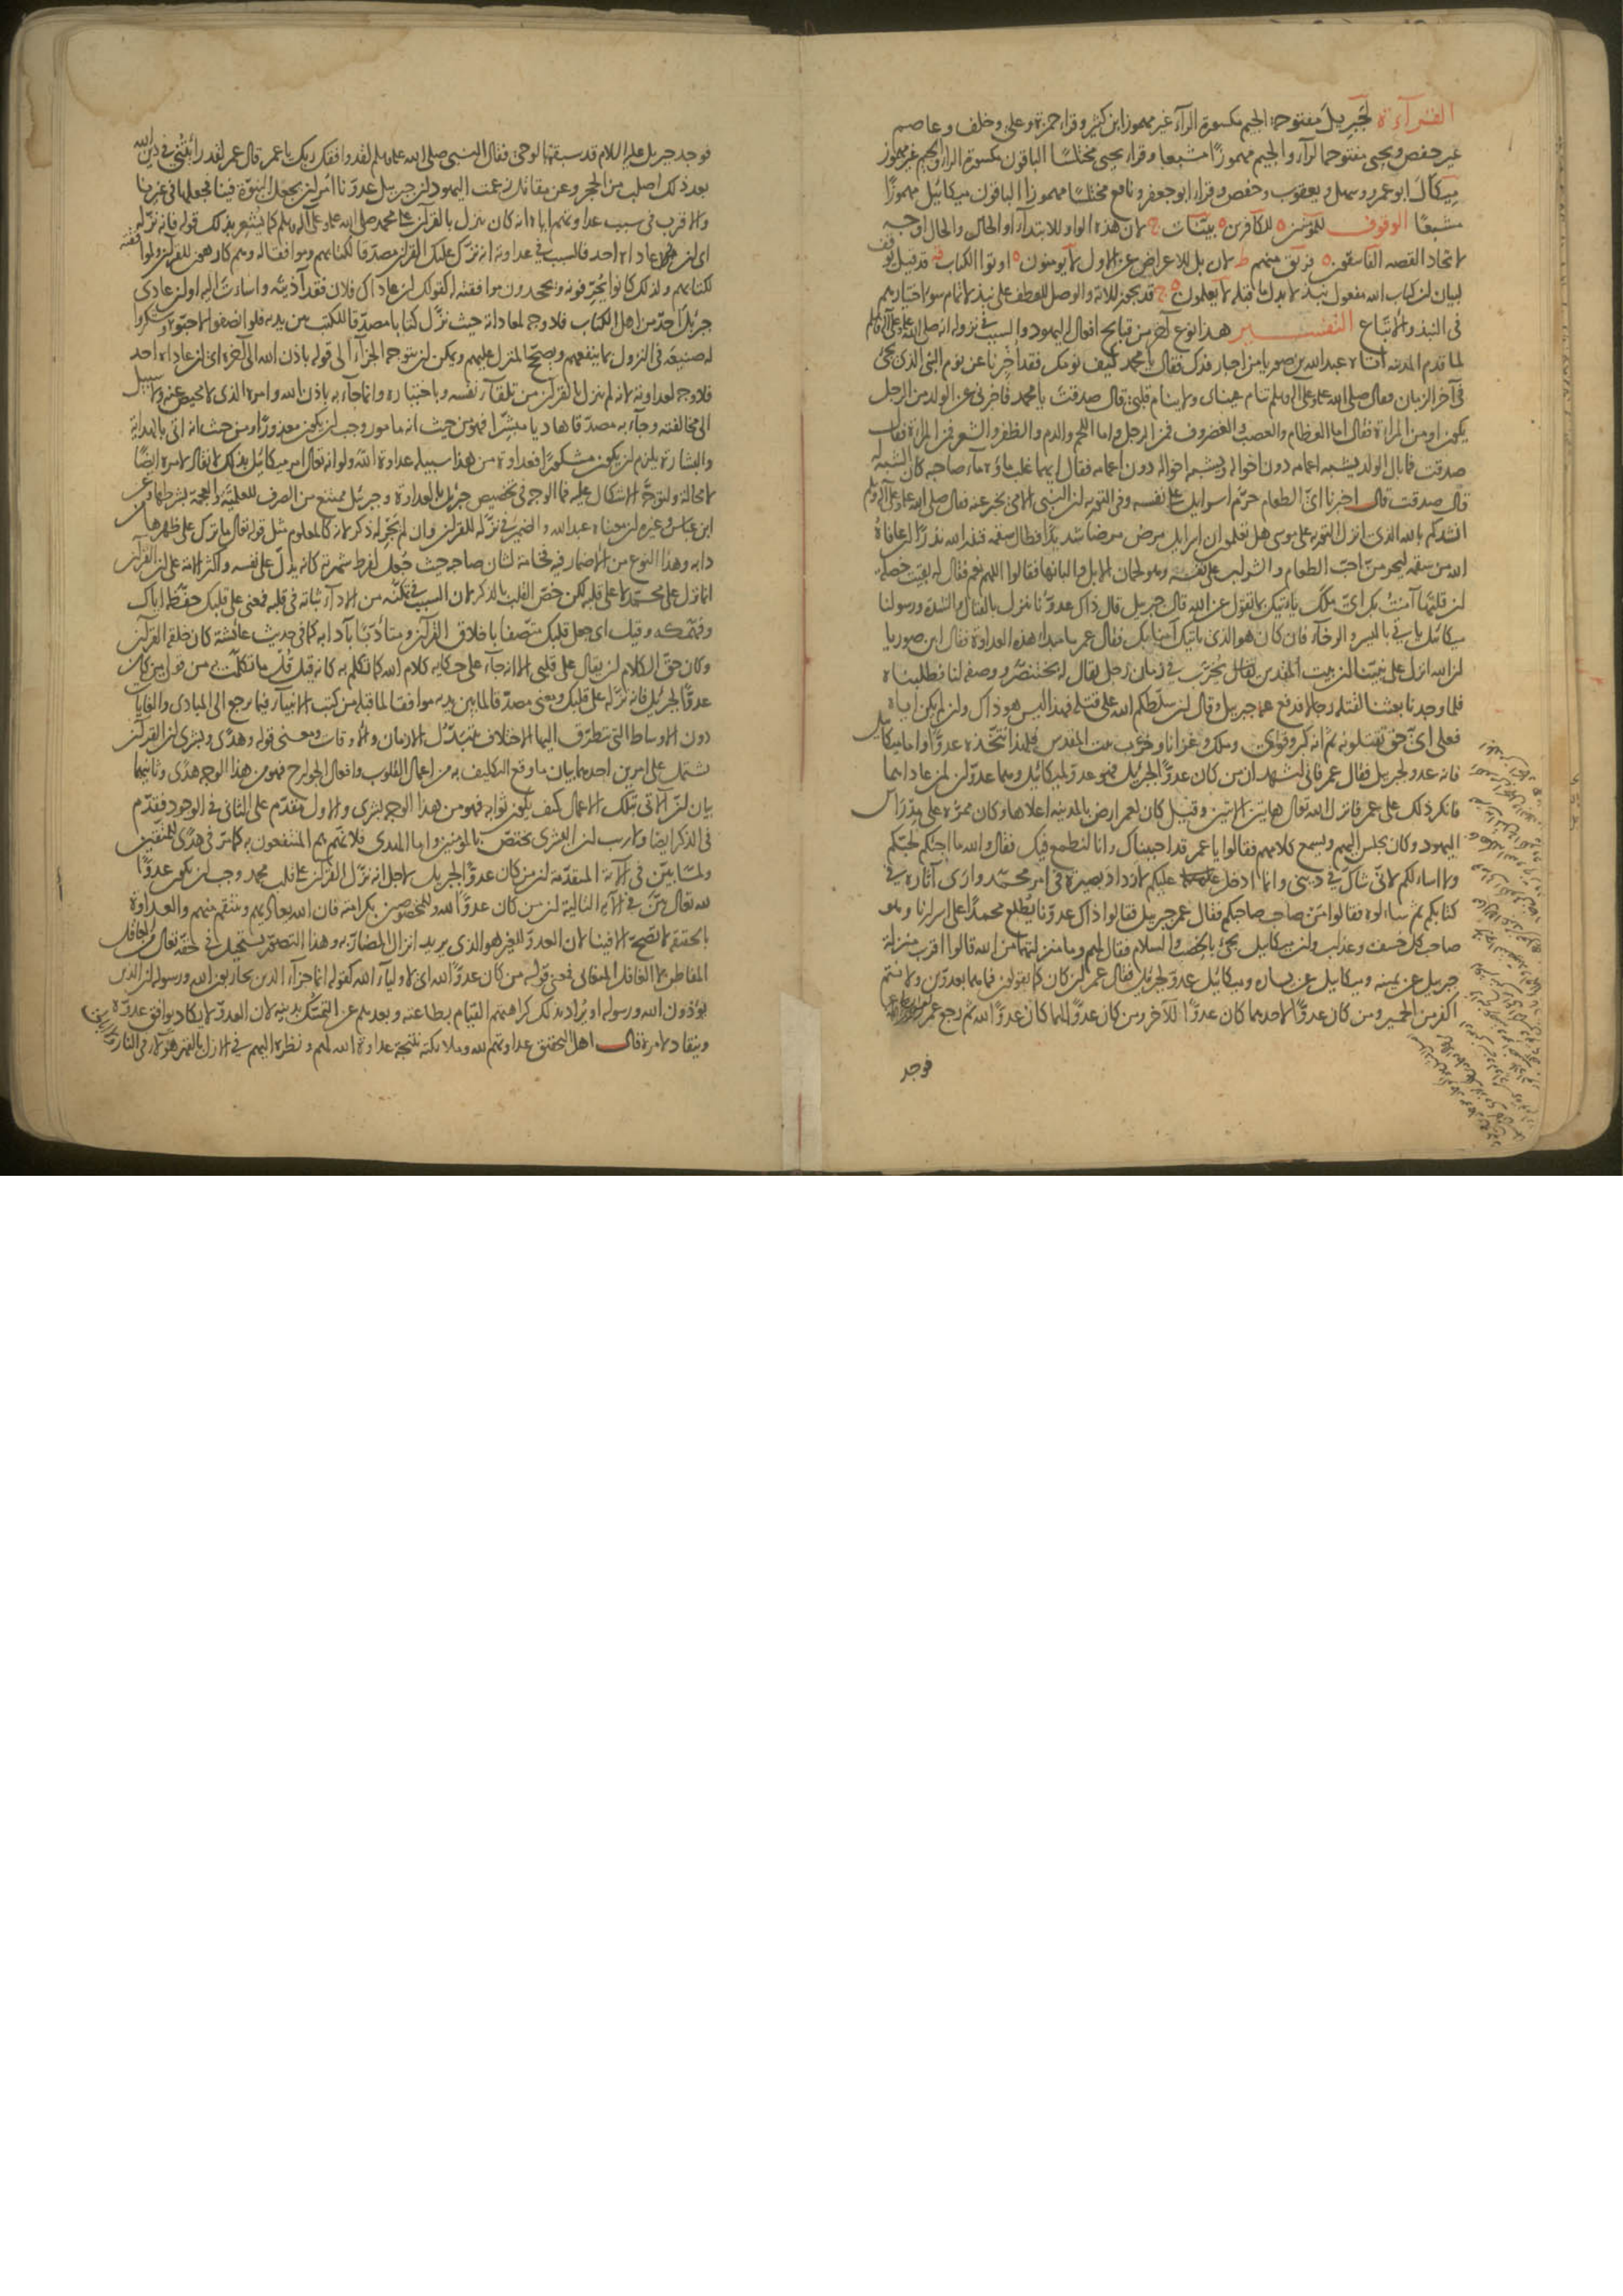 القرآءة لجبريل مفتوحة الجيم مكسورة الرآء غير مهموز ابن كثير وقرأ حمزة وعلي وخلف وعاصم
غير حفص ويحيى مفتوحة الرآء والجيم مهموزًا مشبعا وقرأ يحيى مختلسًا الباقون مكسورة الراء والجيم غير مهموز
ميكال ابو عمرو وسهل ويعقوب وحفص وقرأ ابو جعفر ونافع مختلسًا مهموزا الباقون ميكائيل مهموزًا
مشبعًا الوقوف للمؤمنين ه للكافرين ه بينات ج لان هذه الواو للابتدآء او الحال والحال اوجه
لاتحاد القصه الفاسقون ه فريق منهم ط لان بل للاعراض عن الاول لا يؤمنون ه اوتوا الكتاب قد قيل يوقف
لبيان ان كتاب الله مفعول نبذ لا بدل ما قبله لا يعلمون ه قد يجوز للاية والوصل للعطف على نبذ لاتمام سوء اختيارهم
في النبذ والاتباع التفسير هذا نوع آخر من قبايح افعال اليهود والسبب في نزوله انه صلى الله عليه وعلى آله وسلم
لما قدم المدينه اتاه عبد الله بن صوريا من احبار فدك فقال يا محمد كيف نومك فقد اخبرنا عن نوم النبي الذي يجئ
في آخر الزمان فقال صلى الله عليه وعلى آله وسلم تنام عيناى ولا ينام قلبي قال صدقت يا محمد فاخبرني عن الولد من الرجل
يكون او من المراة فقال اما العظام والعصب والغضروف فمن الرجل واما اللحم والدم والظفر والشعر فمن المراة فقال
صدقت فما بال الولد يشبه اعمامه دون اخواله ويشبه اخواله دون اعمامه فقال ايهما غلب ماؤه مآء صاحبه كان الشبه له
قال صدقت قال اخبرنا اىّ الطعام حرّم اسرايل على نفسه وفي التورية ان النبي الامي يخبر عنه فقال صلى الله عليه وعلى آله وسلم
انشدكم بالله الذي انزل التورية على موسى هل تعلمون ان اسرايل مرض مرضا شديدًا فطال سقمه فنذر لله نذرًا لئن عافاه
الله من سقمه ليحرمن احبّ الطعام والشراب على نفسه وهو لحمان الابل والبانها فقالوا اللهم نعم فقال له بقيت خصلة
ان قلتها آمنت بك اىّ ملك ياتيك بما تقول عن الله قال جبريل قال ذاك عدوّنا ينزل بالقتال والشدة ورسولنا
ميكائيل ياتي بالبشر والرخآء فان كان هو الذي ياتيك آمنا بك فقال عمر ما مبدا هذه العداوة فقال ابن صوريا
ان الله انزل على نبيّنا ان بيت المقدس يخرّب في زمان رجل يقال له بختنصّر ووصفه لنا فطلبناه
فلما وجدناه بعثنا لقتله رجالا فدفع عنه جبريل وقال ان سلطكم الله على قتله فهذا ليس هو ذاك وان لم يكن اياه
فعلى اىّ حق تقتلونه ثم انه كبر وقوى وملك وغزانا وخرّب بيت المقدس فلهذا نتخذه عدوًّا واما ميكائيل
فانه عدو لجبريل فقال عمر فاني اشهد ان من كان عدوًّا لجبريل فهو عدوّ لميكائيل وهما عدوّان لمن عاداهما
فانكر ذلك على عمر فانزل الله تعالى هاتين الآيتين وقيل كان لعمر ارض بالمدينه اعلاها وكان ممرّه على مدراس
اليهود وكان يجلس اليهم ويسمع كلامهم فقالوا يا عمر قد احببناك وانا لنطمع فيك فقال والله ما اجيئكم لحبّكم
ولا اسألكم لاني شاك في ديني وانما ادخل عليكم لازداد بصيرة في امر محمد وارى آثاره في
كتابكم ثم سألوه فقالوا من صاحب صاحبكم فقال عمر جبريل فقالوا ذاك عدوّنا يطلع محمدًا على اسرارنا وهو
صاحب كل خسف وعذاب وان ميكايل يجئ بالخصب والسلام فقال لهم وما منزلتهما من الله قالوا اقرب منزلة
جبريل عن يمينه وميكايل عن يساره وميكائيل عدوّ لجبريل فقال عمر لئن كان كما تقولون فما هما بعدوّين ولا نتم
اكفر من الحمير ومن كان عدوًّا لاحدهما كان عدوًّا للآخر ومن كان عدوًّا لهما كان عدوًّا لله ثم رجع عمر
فوجد
فوجد جبريل عليه السلام قد سبقه بالوحى فقال النبي صلى الله عليه وسلم لقد وافقك ربك يا عمر قال عمر لقد رأيتني في دين الله
بعد ذلك اصلب من الحجر وعن مقاتل زعمت اليهود ان جبريل عدوّنا امر ان يجعل النبوّة فينا فجعلها في غيرنا
والاقرب في سبب عداوتهم اياه انه كان ينزل بالقرآن على محمد صلى الله عليه وعلى آله وسلم كما يشعر بذلك قوله فانه نزّله
اى ان عادى احد فالسبب في عداوته انه نزّل عليك القرآن مصدّقا لكتابهم وموافقا له وهم كارهون للقرآن ولموافقته
لكتابهم ولذلك كانوا يحرّفونه ويجحدون موافقته كقولك ان عاداك فلان فقد آذيته واسأت اليه او ان عادى
جبريل احد من اهل الكتاب فلا وجه لمعاداته حيث نزّل كتابا مصدّقا للكتب من يديه فلو انصفوا لاحبّوه وشكروا
له صنيعه في انزول ما ينفعهم ويصحّح المنزل عليهم ويمكن ان يتوجه الجزآء الى قوله باذن الله الى آخره اى ان عاداه احد
فلا وجه لعداوته لانه لم ينزل بالقرآن من تلقآء نفسه وباختياره وانما جآء به باذن الله وامره الذى لا محيص عنه ولا سبيل
الى مخالفته وجآء به مصدّقا هاديا مبشّرا فهو من حيث انه مامور وجب ان يكون معذورًا ومن حيث انه اتى بالهداية
والبشارة يلزم ان يكون مشكورًا فعداوة من هذا سبيله عداوة الله ولو انه تعالى امر ميكائيل بذلك لانقاد لامره ايضًا
لا محالة ولتوجّه الاشكال عليه فما الوجه في تخصيص جبريل بالعداوة وجبريل ممتنع من الصرف للعلمية والعجمة بشرطها وعن
ابن عباس وغيره ان معناه عبد الله والضمير في نزّله للقرآن وان لم يجر له ذكر لانه كالمعلوم مثل قوله تعالى ما ترك على ظهرها من
دابه وهذا النوع من الاضمار فيه فخامة لشان صاحبه حيث جعل لفرط شهرته كانه يدلّ على نفسه واكثر الامة على ان القرآن
انما نزل على محمد لا على قلبه لكن خصّ القلب بالذكر لان السبب في تمكنه من الادآء ثباته في قلبه فمعنى على قلبك حفظه اياك
وفهّمكه وقيل اى جعل قلبك متصفا باخلاق القرآن ومتأدّبًا بآدابه كما في حديث عائشة كان خلقه القرآن
وكان حقّ الكلام ان يقال على قلبي الا انه جآء على حكاية كلام الله كما تكلم به كانه قيل قل ما تكلمت به من قولي من كان
عدوًّا لجبريل فانه نزّله على قلبك ومعنى مصدّقا لما بين يديه موافقا لما قبله من كتب الانبيآء فيما يرجع الى المبادى والغايات
دون الاوساط التي يتطرّق اليها الاختلاف بتبدّل الازمان والاوقات ومعنى قوله وهدًى وبشرى ان القرآن
يشتمل على امرين احدهما بيان ما وقع التكليف به من اعمال القلوب وافعال الجوارح فهو من هذا الوجه هدًى وثانيهما
بيان ان الآتي بتلك الاعمال كيف يكون ثوابه فهو من هذا الوجه بشرى والاول مقدّم على الثاني في الوجود فقدّم
في الذكر ايضا ولا ريب ان البشرى يختص بالمؤمنين واما الهدى فلانهم هم المنتفعون به كما مرّ في هدًى للمتقين
ولمّا بيّن في الآية المتقدّمة ان من كان عدوًّا لجبريل لاجل انه نزّل القرآن على قلب محمد وجب ان يكون عدوًّا
لله تعالى بيّن في الآية التالية ان من كان عدوًّا لله وللمخصوصين بكرامته فان الله يعاديهم وينتقم منهم والعداوة
بالحقيقة لا تصحّ الا فينا لان العدوّ للغير هو الذى يريد انزال المضارّ به وهذا التصوّر يستحيل في حقه تعالى من العاقل
المتفاطن لا الغافل المتغابى فمعنى قوله من كان عدوًّا لله اى لاوليآء الله كقوله انما جزآء الذين يحاربون الله ورسوله ان الذين
يؤذون الله ورسوله او يراد بذلك كراهتهم القيام بطاعته وبعدهم عن التمسّك بدينه لان العدوّ لا يكاد يوافق عدوّه
وينقاد لامره قال اهل التحقيق عداوتهم لله وملائكته نتيجة عداوة الله لهم ونظره اليهم في الازل بالقهر هؤلآء في النار ولا ابالي